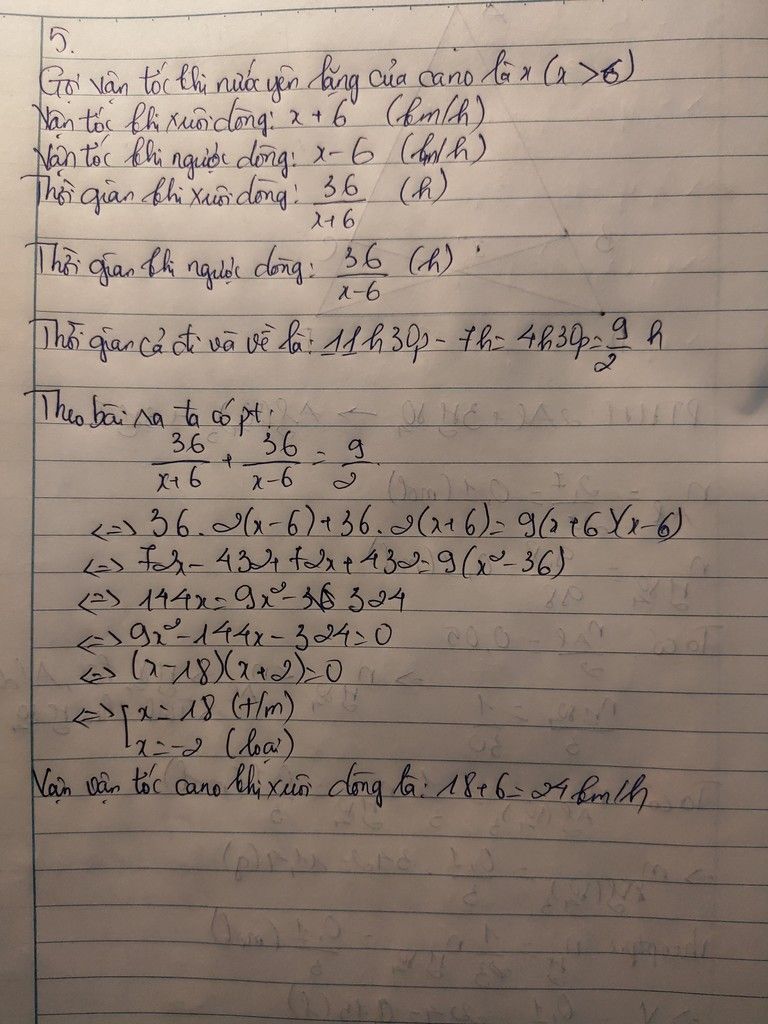 5.
Gọi vận tốc khi nước yên lặng của cano là x (x > 6)
Vận tốc khi xuôi dòng: x + 6 (km/h)
Vận tốc khi ngược dòng: x - 6 (km/h)
Thời gian khi xuôi dòng: 36/(x+6) (h)
Thời gian khi ngược dòng: 36/(x-6) (h)
Thời gian cả đi và về là: 11h30p - 7h = 4h30p = 9/2 h
Theo bài ra ta có pt:
36/(x+6) + 36/(x-6) = 9/2
<=> 36.2(x-6) + 36.2(x+6) = 9(x+6)(x-6)
<=> 72x - 432 + 72x + 432 = 9(x² - 36)
<=> 144x = 9x² - 324
<=> 9x² - 144x - 324 = 0
<=> (x-18)(x+2) = 0
<=> [x = 18 (t/m)
x = -2 (loại)
Vận vận tốc cano khi xuôi dòng là: 18 + 6 = 24 km/h